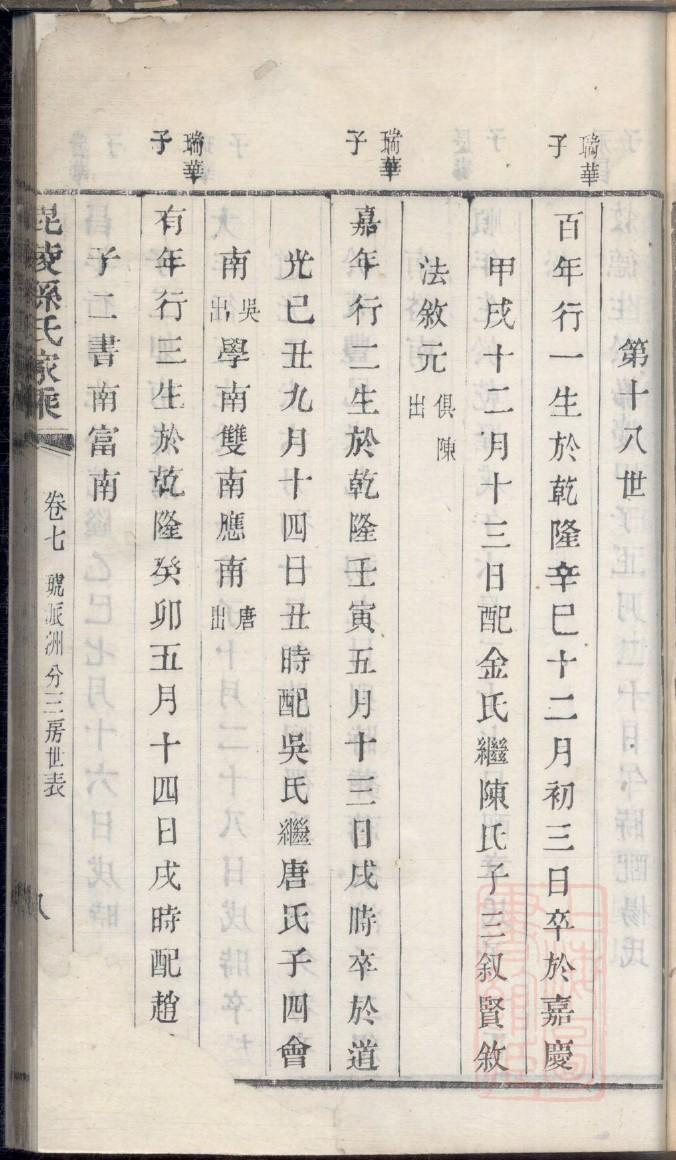 第十八世
瑞華子
百年行一生於乾隆辛巳十二月初三日卒於嘉慶
甲戌十二月十三日配金氏繼陳氏子三叙賢敘
法敘元俱陳出
瑞華子
嘉年行二生於乾隆壬寅五月十三日戌時卒於道
光己丑九月十四日丑時配吳氏繼唐氏子四會
南吳出學南雙南應南唐出
瑞華子
有年行三生於乾隆癸卯五月十四日戌時配趙
子二書南富南
毘陵孫氏家乘
卷七 號派洲分三房世表
八